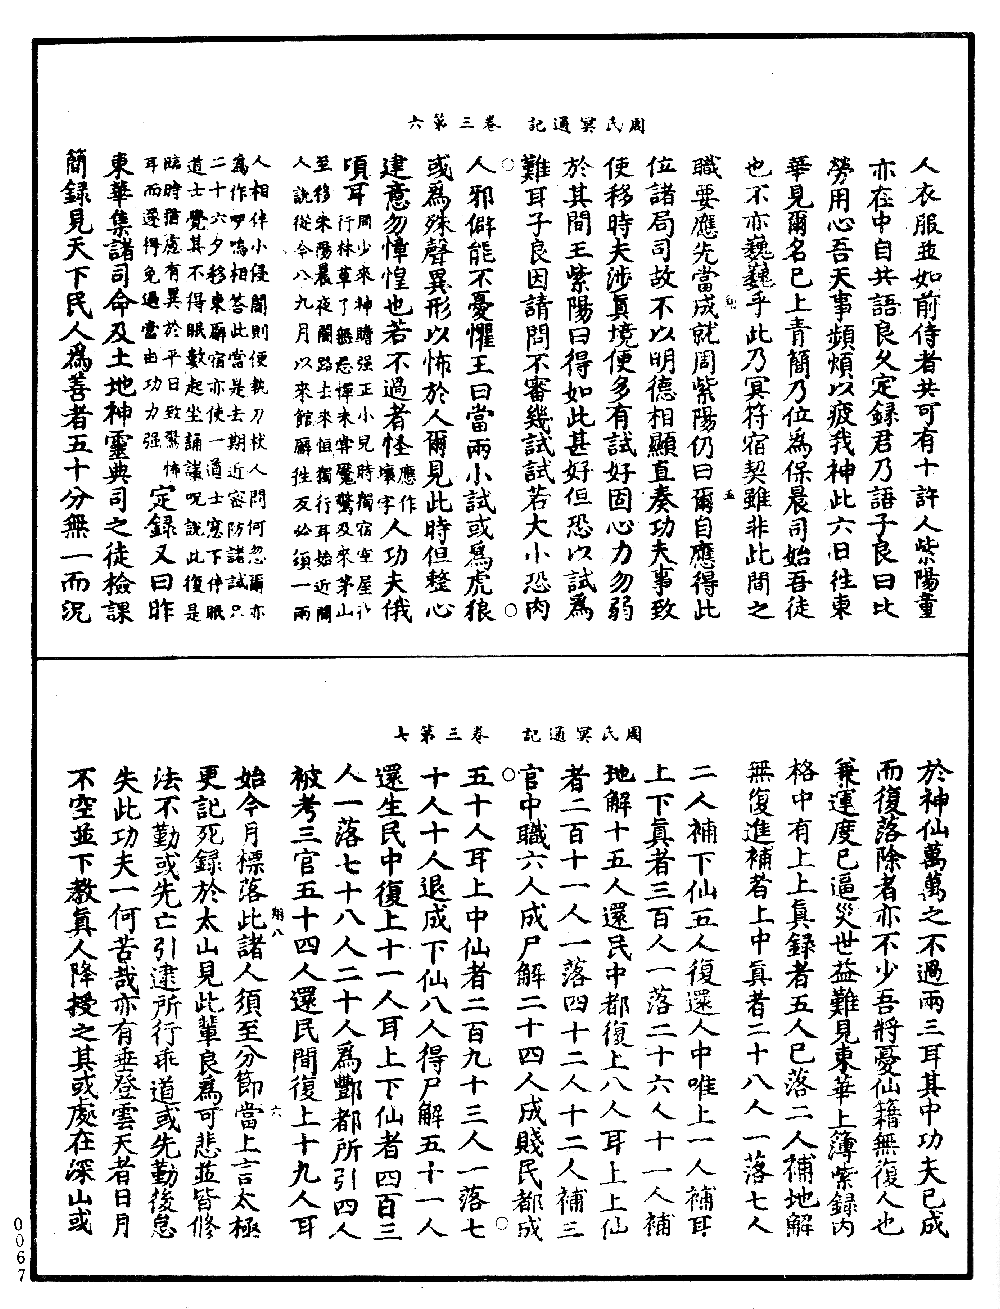 周氏冥通記　卷三第六
人衣服並如前侍者共可有十許人紫陽童
亦在中自共語良久定録君乃語子良曰比
勞用心吾天事頻煩以疲我神此六日往東
華見爾名已上青簡乃位為保晨司始吾徒
也不亦巍巍乎此乃冥符宿契雖非此間之
職要應先當成就周紫陽仍曰爾自應得此
位諸局司故不以明德相顯直奏功夫事致
使移時夫涉真境便多有試好固心力勿弱
於其間王紫陽曰得如此甚好但恐以試為
難耳子良因請問不審幾試試若大小恐肉
人邪僻能不憂懼王曰當兩小試或為虎狼
或為殊聲異形以怖於人爾見此時但整心
建意勿惶惶也若不過者怪應作壞字人功夫俄
頃耳周少來神瞻强正小兒時獨宿空屋
行林草了無忌憚未嘗魘驚及來茅山
至移朱陽晨夜闇路去來恒獨行耳始近聞
人說從今八九月以來館廨往反必須一兩
人相伴小侵闇則便執刀杖人問何忽爾亦
為作啰嗚相答此當是去期近密防諸試只
二十六夕移東廨宿亦使一道士寒下伴眠
道士覺其不得眠數起坐誦議呪說此復是
臨時猶慮有異於平日致驚怖
耳而遂得免過當由功力强定録又曰昨
東華集諸司命及土地神靈典司之徒檢課
簡録見天下民人為善者五十分無一而況
周氏冥通記　卷三第七
於神仙萬萬之不過兩三耳其中功夫已成
而復落除者亦不少吾將憂仙籍無復人也
兼運度已逼災世益難見東華上簿紫録内
格中有上上真録者五人已落二人補地解
無復進補者上中真者二十八人一落七人
二人補下仙五人復還人中唯上一人補耳
上下真者三百人一落二十六人十一人補
地解十五人還民中都復上八人耳上上仙
者二百十一人一落四十二人十二人補三
官中職六人成尸解二十四人成賤民都成
五十人耳上中仙者二百九十三人一落七
十人十人退成下仙八人得尸解五十一人
還生民中復上十一人耳上下仙者四百三
人一落七十八人二十人為酆都所引四人
被考三官五十四人還民間復上十九人耳
始今月標落此諸人須至分節當上言太極
更記死録於太山見此輩良為可悲並皆修
法不勤或先亡引逮所行乖道或先勤後怠
失此功夫一何苦哉亦有垂登雲天者日月
不空並下教真人降授之其或處在深山或
翔八
六
五
0067